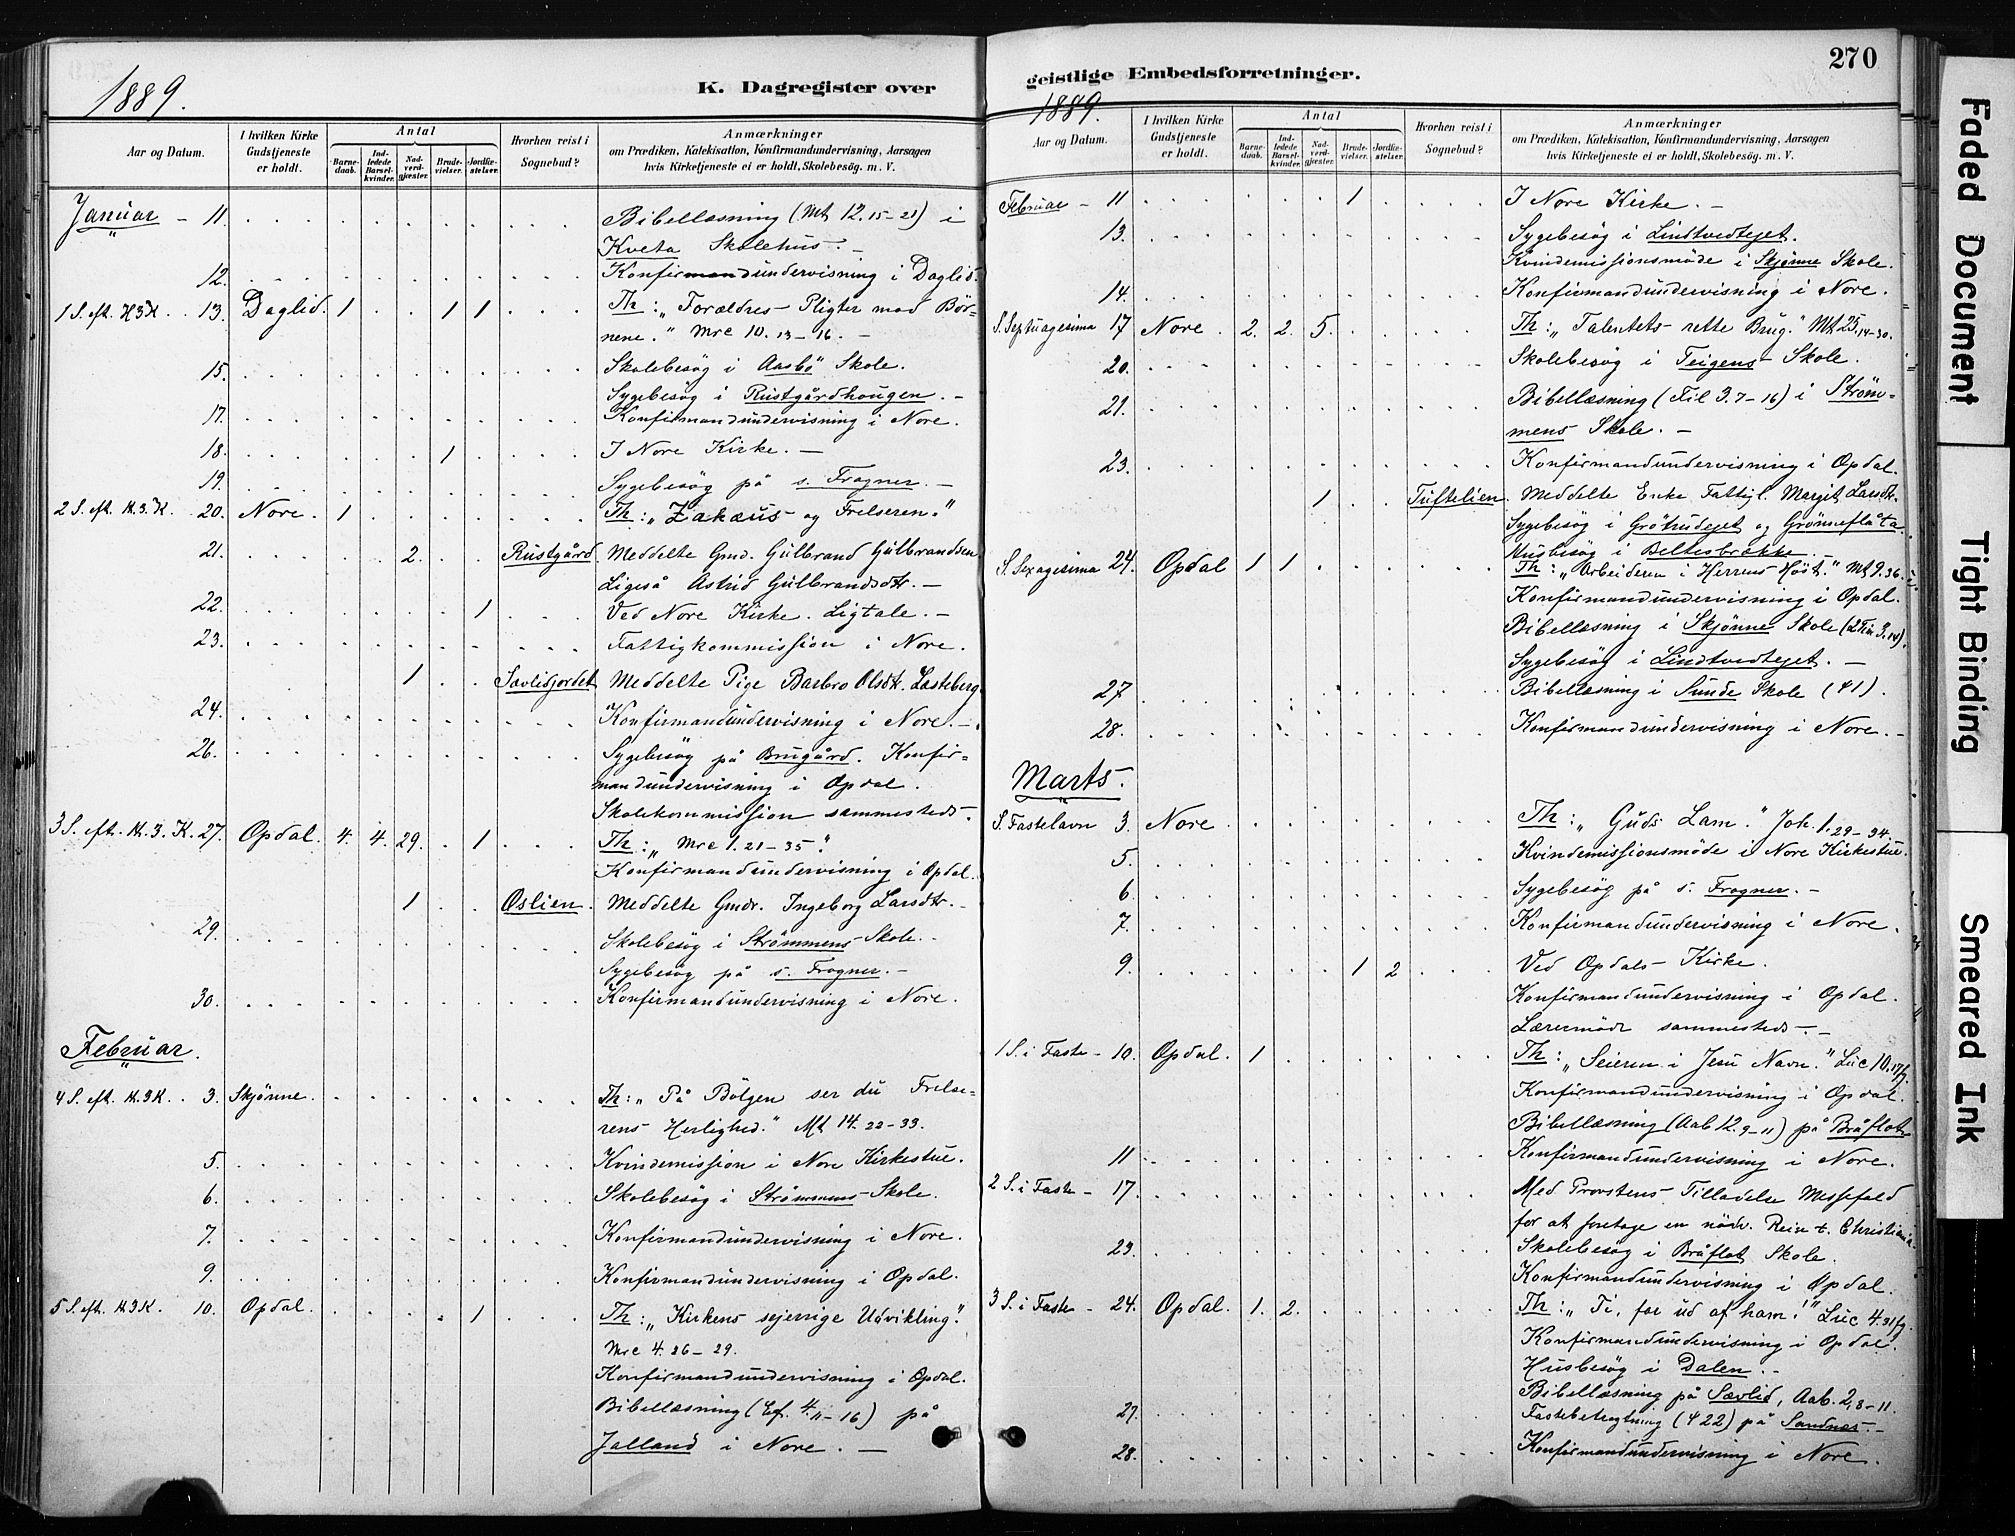 1889.
K. Dagregister over
Aar og Datum.
I hvilken Kirke Gudstjeneste er holdt.
Antal
Barne-daab.
Ind-ledede Barsel-kvinder.
Nad-verd-gjæster.
Brude-vielser.
Jordfæ-stelser.
Hvorhen reist i Sognebud?
Anmærkninger
om Prædiken, Katekisation, Konfirmandundervisning, Aarsagen
hvis Kirketjeneste ei er holdt, Skolebesög. m. V.
Januar - 11. Bibellæsning (Mt 12. 15-21) i
Kveta Skolehus. -
12. Konfirmandundervisning i Daglid.
1 S. eft. H3K. 13. Daglid. 1 1 1 Th: „Forældres Pligter mod Bör-
nene." Mrc 10. 13-16. -
15. Skolebesög i Aasbö Skole.
Sygebesög i Rustgårdhougen. -
17. Konfirmandundervisning i Nore.
18. 1 I Nore Kirke. -
19. Sygebesög på s. Frogner. -
2 S. eft. H.3.K. 20. Nore. 1 Th: „Zakæus og Frelseren."
21. 2. Rustgård. Meddelte Gmd. Gulbrand Gulbrandsen
Ligeså Astrid Gulbrandsdtr. -
22. 1 Ved Nore Kirke. Ligtale. -
23. Fattigkommission i Nore.
1 Sævlidjordet Meddelte Pige Barbro Olsdtr. Lasteberg
24. Konfirmandundervisning i Nore. -
26. Sygebesög på Brugård. Konfir-
mandundervisning i Opdal.
Skolekommission sammesteds.
3 S. eft. H.3.K. 27. Opdal. 4. 4. 29. 1 Th: „Mrc 1. 21-35."
Konfirmandundervisning i Opdal.
1 Oslien. Meddelte Gmdr. Ingeborg Larsdtr. -
29. Skolebesög i Strömmens Skole. -
Sygebesög på s. Frogner. -
30. Konfirmandundervisning i Nore.
Februar.
4 S. eft. H.3K. 3. Skjönne. Th: „På Bölgen ser du Frelse-
rens Herlighed." Mt 14. 22-33.
5. Kvindemission i Nore Kirkestue.
6. Skolebesög i Strömmens Skole.
7. Konfirmandundervisning i Nore.
9. Konfirmandundervisning i Opdal.
5 S. eft. H3K. 10. Opdal. 1 Th: „Kirkens sejerrige Udvikling."
Mrc 4. 26-29.
Konfirmandundervisning i Opdal.
Bibellæsning (Ef. 4. 11-16) på
Jalland i Nore. -
geistlige Embedsforretninger.
270
1889.
Aar og Datum.
I hvilken Kirke Gudstjeneste er holdt.
Antal
Barne-daab.
Ind-ledede Barsel-kvinder.
Nad-verd-gjæster.
Brude-vielser.
Jordfæ-stelser.
Hvorhen reist i Sognebud?
Anmærkninger
om Prædiken, Katekisation, Konfirmandundervisning, Aarsagen
hvis Kirketjeneste ei er holdt, Skolebesög. m. V.
Februar - 11 1 I Nore Kirke. -
13. Sygebesög i Lindtvedtejet.
Kvindemissionsmöde i Skjönne Skole.
14. Konfirmandundervisning i Nore.
S. Septuagesima 17 Nore. 2. 2. 5. Th: „Talentets rette Brug." Mt 25. 14-30.
20. Skolebesög i Teigens Skole.
21. Bibellæsning (Fil 3. 7-16) i Ström-
mens Skole. -
23. Konfirmandundervisning i Opdal.
1 Tuftelien. Meddelte Enke Fattigl. Margit Larsdtr.
Sygebesög i Grötrudejet og Grönneflåta
Husbesög i Beltesbråkke.
S. Sexagesima 24. Opdal 1 1 Th: „Arbeideren i Herrens Höst." Mt 9. 36.
Konfirmandundervisning i Opdal.
Bibellæsning i Skjönne Skole (2 Tim 3. 14).
Sygebesög i Lindtvedtejet. -
27 Bibellæsning i Sunde Skole (41).
28. Konfirmandundervisning i Nore. -
Marts.
S. Fastelavn 3. Nore. Th: „Guds Lam." Joh. 1. 29-34.
5. Kvindemissionsmöde i Nore Kirkestue.
6 Sygebesög på s. Frogner. -
7. Konfirmandundervisning i Nore.
9. 1 2 Ved Opdals Kirke.
Konfirmandundervisning i Opdal.
Læremöde sammesteds. -
1 S. i Faste - 10. Opdal. 1 Th: „Seieren i Jesu Navn." Luc 10. 17fg.
Konfirmandundervisning i Opdal.
Bibellæsning (Aab 12. 9-11) på Bråflot
11 Konfirmandundervisning i Nore.
2 S. i Faste - 17. Med Provstens Tilladelse Messefald
for at foretage en nödv. Reise t. Christiania.
23. Skolebesög i Bråflot Skole.
Konfirmandundervisning i Opdal.
3 S. i Faste - 24. Opdal. 1. 2. Th: „Ti, far ud af ham!" Luc 4. 31fg.
Konfirmandundervisning i Opdal.
Husbesög i Dalen. -
Bibellæsning på Sævlid, Aab. 2, 8-11.
27. Fastebetragtning (422) på Sandnes. -
28. Konfirmandundervisning i Nore.
Faded Document
Tight Binding
Smeared Ink